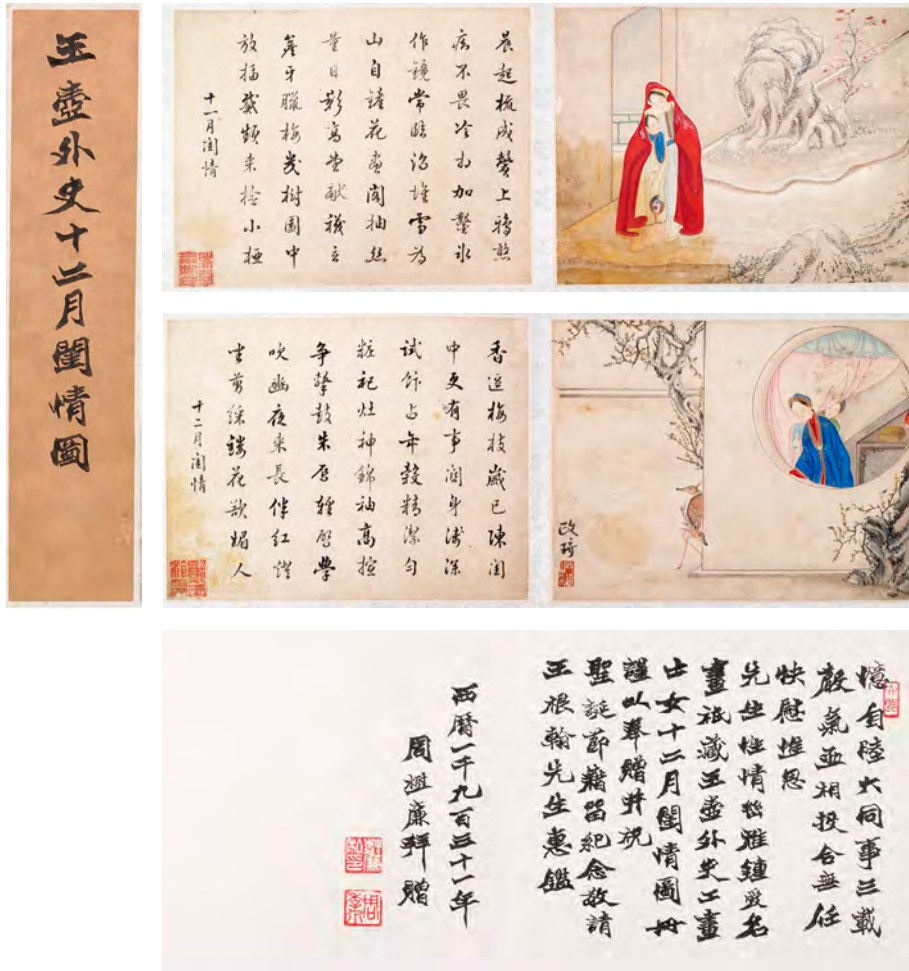 玉壺外史十二月閨情圖
晨起梳成鬢上鴉憨
痴不畏冷相加鑿氷
作鏡常臨沼堆雪為
山自鏤花畫閣抽絲
量日影高堂獻襪立
簷牙臘梅幾樹園中
放插戴頻来撿小椏
十一月閨情
香逗梅枝歲已陳閨
中更有事關身淺深
試飾占年穀精潔勻
粧祀灶神錦袖高揎
争擊鼓朱唇輕啟學
吹豳夜来長伴紅燈
坐剪綵鏤花欲媚人
十二月閨情
改琦
憶自陸大同事三載
聲氣亟相投合無任
快慰惟思
先生性情恬雅鍾愛名
畫祇藏玉壺外史工畫
仕女十二月閨情圖冊
謹以奉贈并祝
聖誕節藉留紀念敬請
王根翰先生惠鑑
西曆一千九百三十一年
周廉拜贈